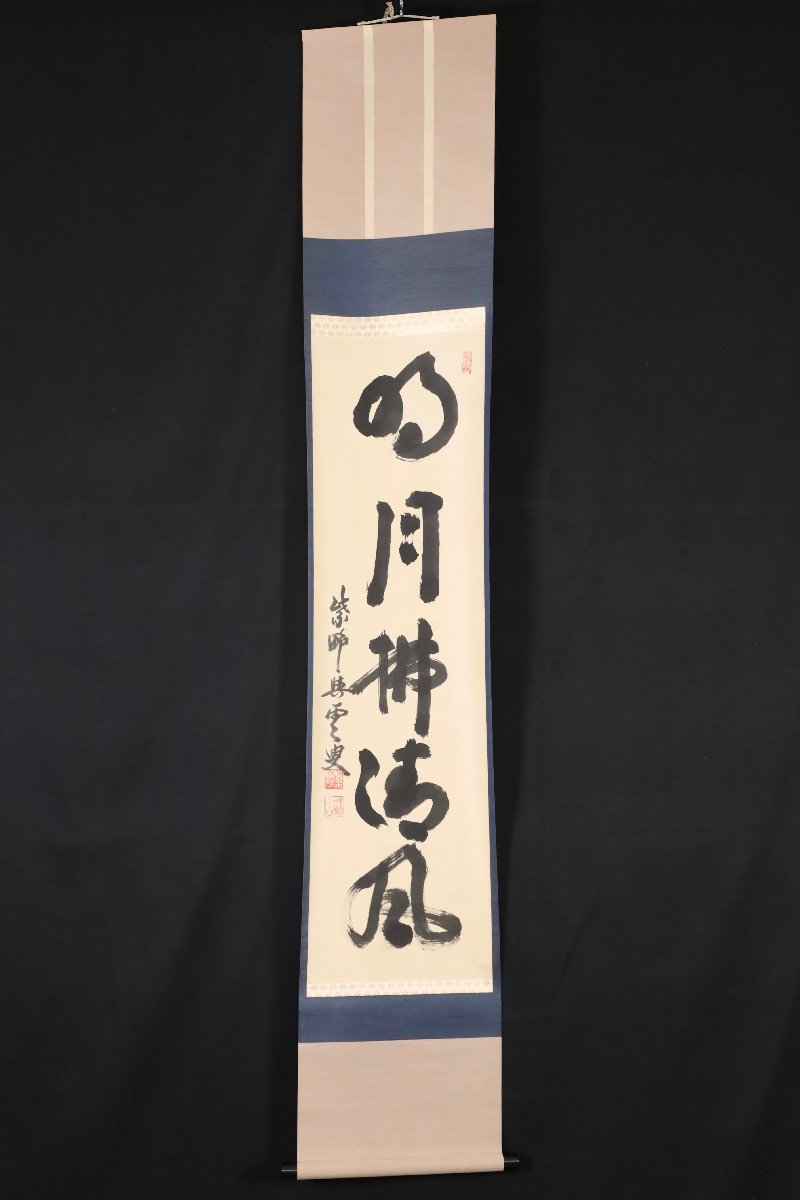 明月拂清風
紫野 興雲叟